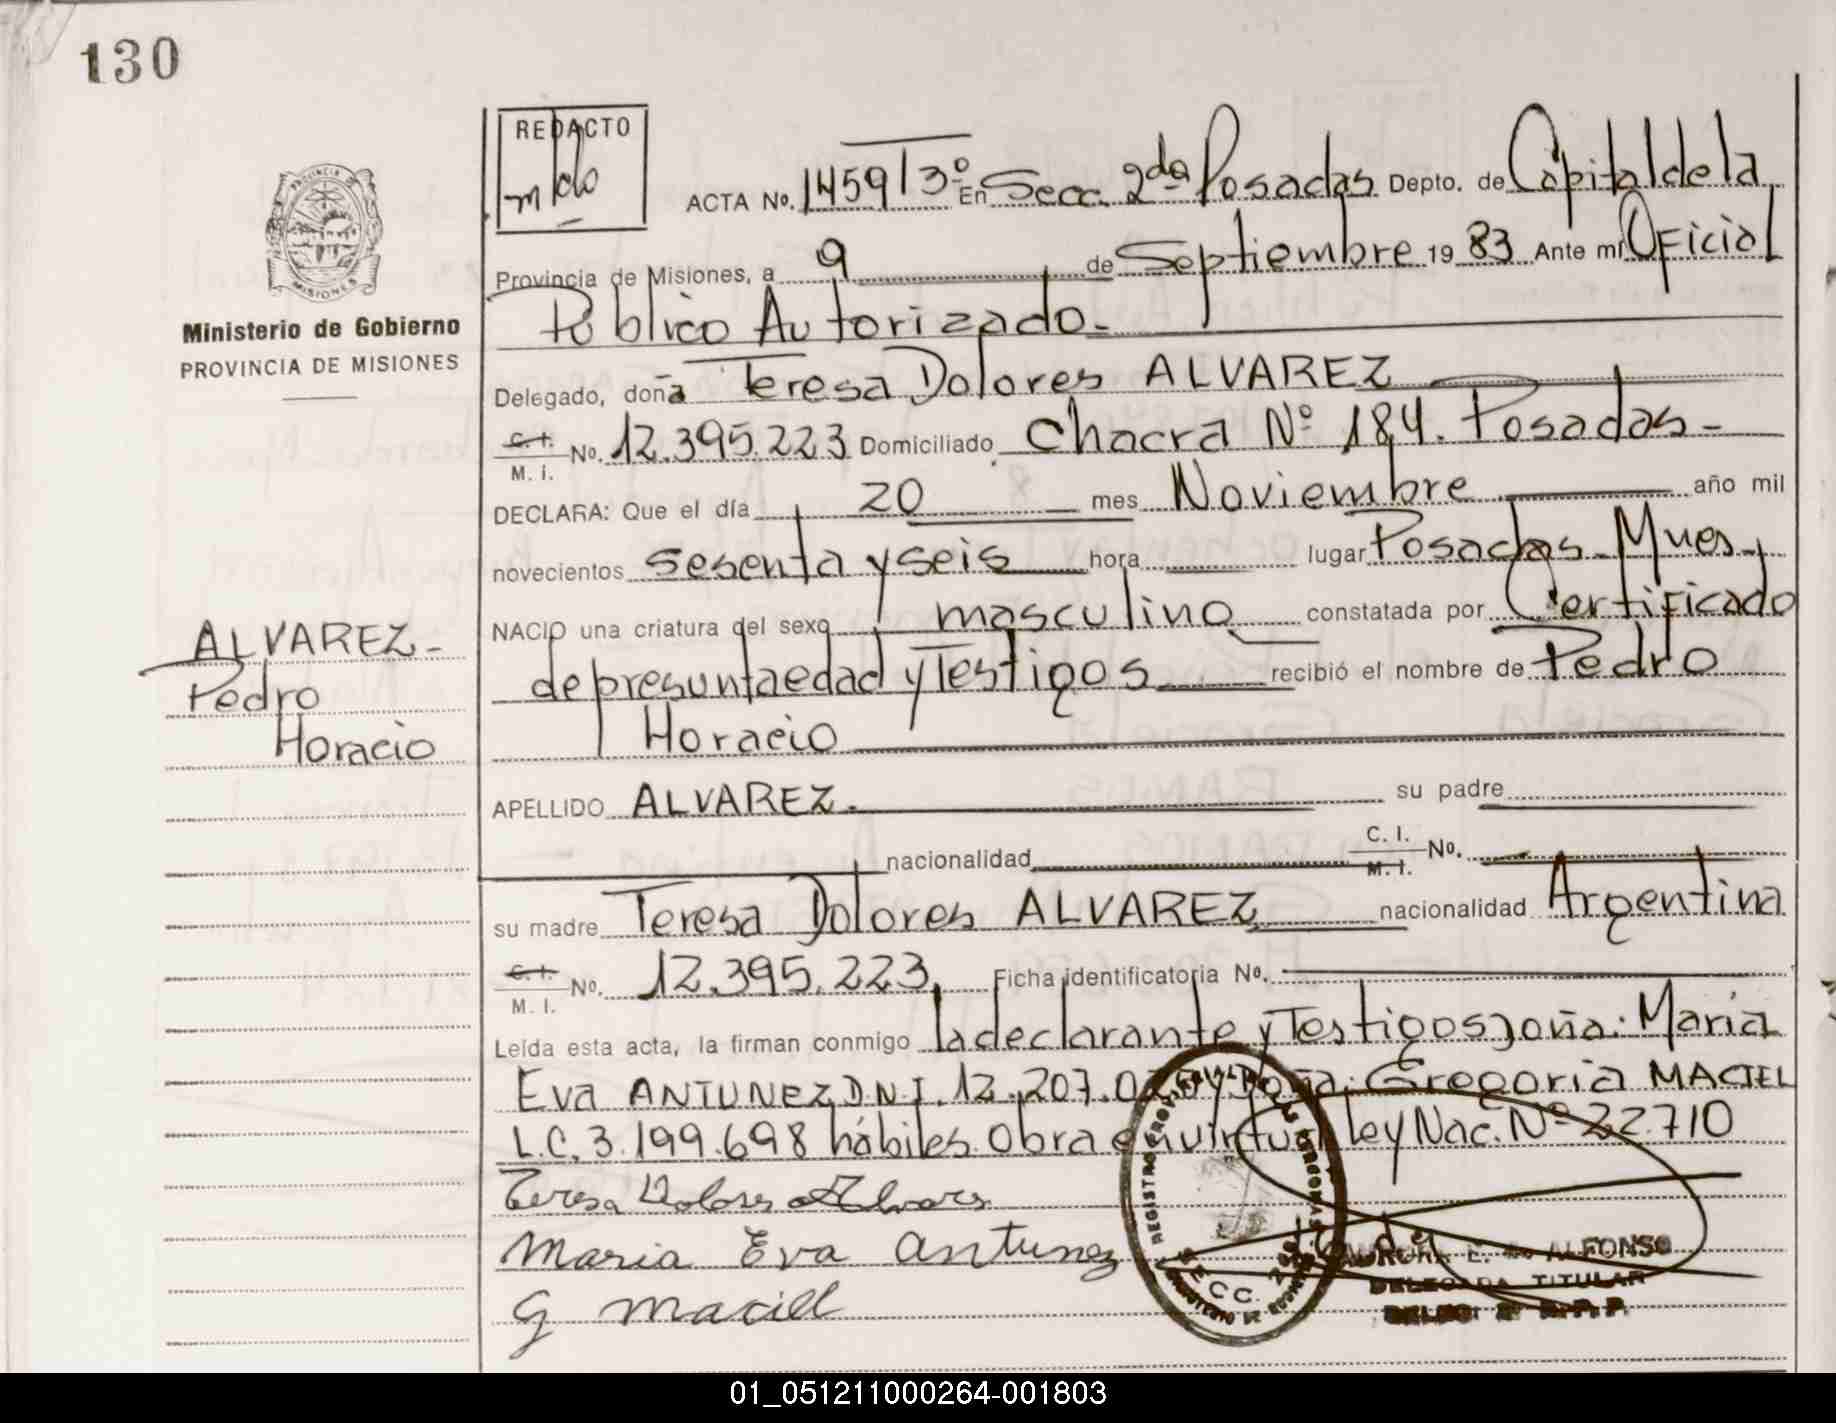 130
REDACTO
ACTA No. 1459 T 3º En Secc. 2da Posadas Depto. de Capital de la
Provincia de Misiones, a 9 de Septiembre 19 83 Ante mí Oficial
Público Autorizado.-
PROVINCIA DE
MISIONES
Ministerio de Gobierno
PROVINCIA DE MISIONES
Delegado, doña Teresa Dolores ALVAREZ
C. I.
M. I. No. 12.395.223 Domiciliado Chacra Nº 184. Posadas-
DECLARA: Que el día 20 mes Noviembre año mil
novecientos sesenta y seis hora lugar Posadas-Mnes-
NACIO una criatura del sexo masculino constatada por Certificado
de presunta edad y Testigos recibió el nombre de Pedro
Horacio
ALVAREZ-
Pedro
Horacio
APELLIDO ALVAREZ. su padre
nacionalidad C. I.
M. I. No.
su madre Teresa Dolores ALVAREZ nacionalidad Argentina
C. I.
M. I. No. 12.395.223, Ficha identificatoria No.
Leída esta acta, la firman conmigo la declarante y Testigos Doña: María
Eva ANTUNEZ D.N.I. 12.207.0 y Doña: Gregoria MACIEL
L.C. 3.199.698 hábiles. Obra en virtud ley Nac. Nº 22.710
Teresa Dolores Alvares
Maria Eva Antunez
G Maciel
SECC.
E. de ALFONSO
DELEGADA TITULAR
01_051211000264-001803